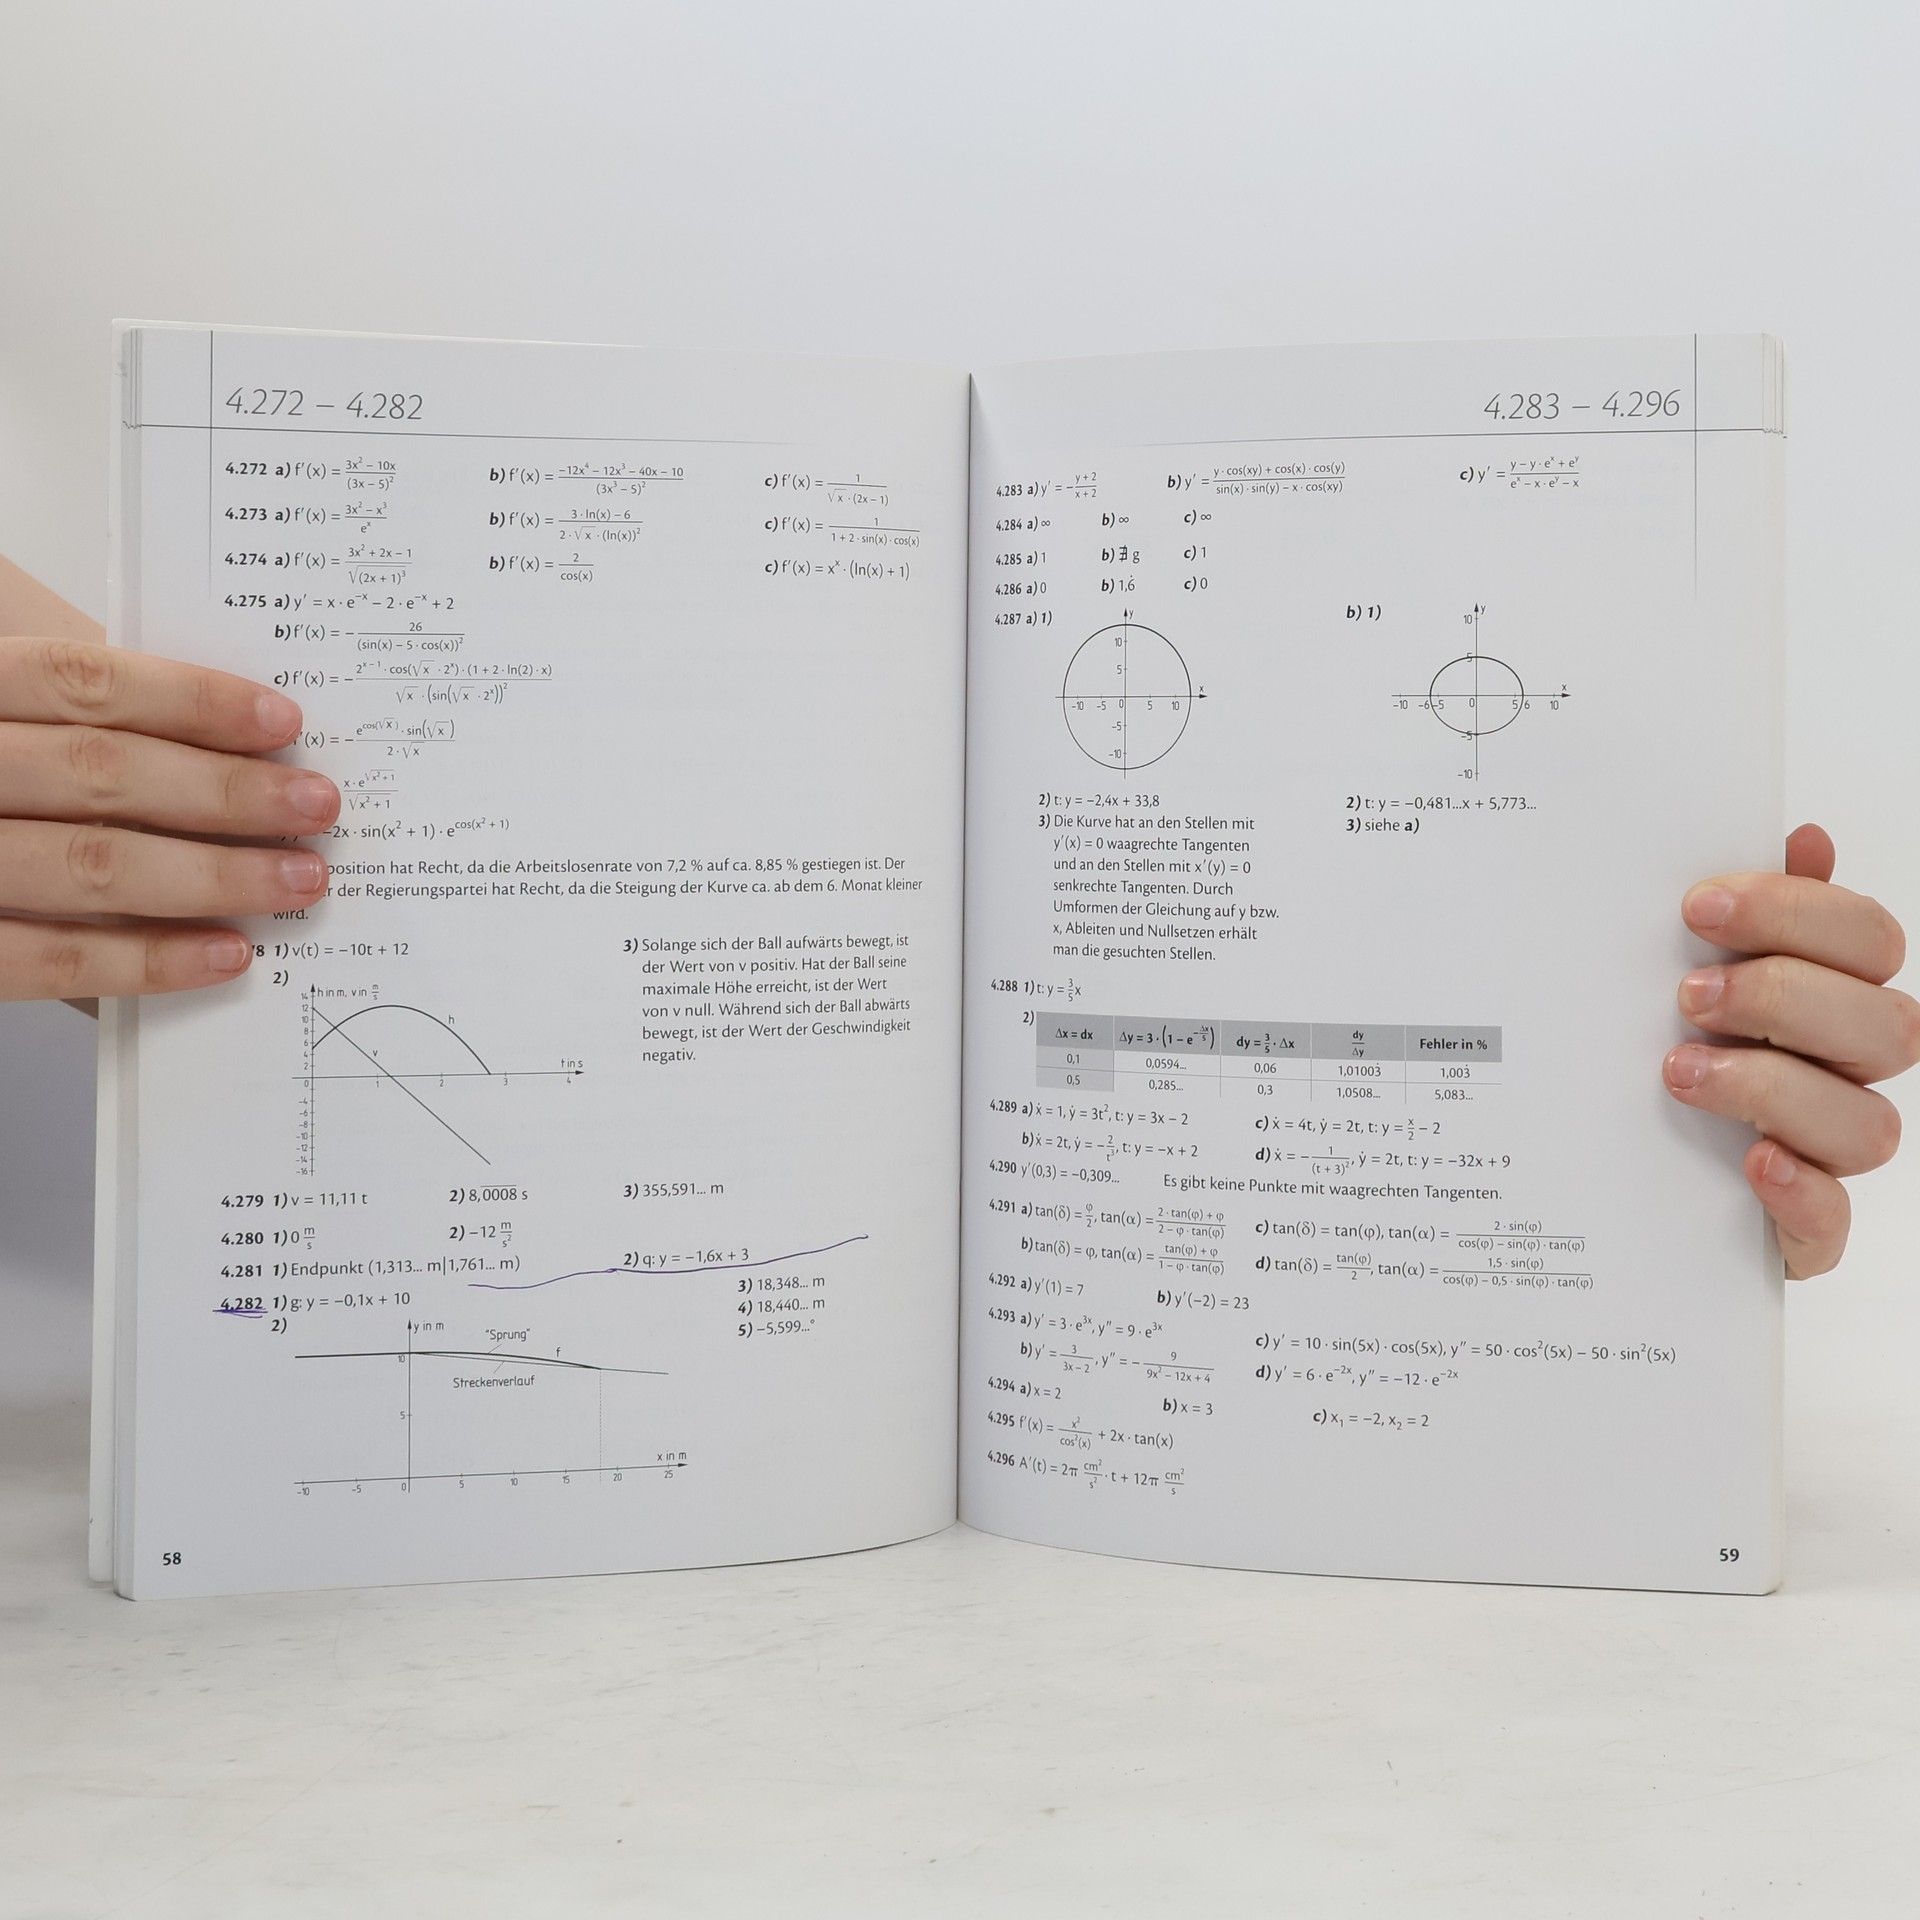 4.272 – 4.282
4.272 a) f′(x) = (3x² – 10x)/(3x – 5)² b) f′(x) = (–12x⁴ – 12x³ – 40x – 10)/(3x³ – 5)² c) f′(x) = 1/(√x · (2x – 1))
4.273 a) f′(x) = (3x² – x³)/eˣ b) f′(x) = (3 · ln(x) – 6)/(2 · √x · (ln(x))²) c) f′(x) = 1/(1 + 2 · sin(x) · cos(x))
4.274 a) f′(x) = (3x² + 2x – 1)/√((2x + 1)³) b) f′(x) = 2/cos(x) c) f′(x) = xˣ · (ln(x) + 1)
4.275 a) y′ = x · e⁻ˣ – 2 · e⁻ˣ + 2
b) f′(x) = – 26/(sin(x) – 5 · cos(x))²
c) f′(x) = – (2ˣ⁻¹ · cos(√x · 2ˣ) · (1 + 2 · ln(2) · x))/(√x · (sin(√x · 2ˣ))²)
′(x) = – (e^cos(√x) · sin(√x))/(2 · √x)
(x · e^√(x² + 1))/√(x² + 1)
–2x · sin(x² + 1) · e^cos(x² + 1)
position hat Recht, da die Arbeitslosenrate von 7,2 % auf ca. 8,85 % gestiegen ist. Der
der Regierungspartei hat Recht, da die Steigung der Kurve ca. ab dem 6. Monat kleiner
wird.
8 1) v(t) = –10t + 12
2)
h in m, v in m/s
14
12
10
8
6
4
2
0
–4
–6
–8
–10
–12
–14
–16
h
v
t in s
1 2 3 4
3) Solange sich der Ball aufwärts bewegt, ist
der Wert von v positiv. Hat der Ball seine
maximale Höhe erreicht, ist der Wert
von v null. Während sich der Ball abwärts
bewegt, ist der Wert der Geschwindigkeit
negativ.
4.279 1) v = 11,11 t 2) 8,0008 s 3) 355,591... m
4.280 1) 0 m/s 2) –12 m/s²
4.281 1) Endpunkt (1,313... m|1,761... m) 2) q: y = –1,6x + 3
4.282 1) g: y = –0,1x + 10 3) 18,348... m
4) 18,440... m
2) 5) –5,599...°
y in m
"Sprung"
f
10
Streckenverlauf
5
x in m
–10 –5 0 5 10 15 20 25
58
4.283 – 4.296
4.283 a) y′ = – (y + 2)/(x + 2) b) y′ = (y · cos(xy) + cos(x) · cos(y))/(sin(x) · sin(y) – x · cos(xy)) c) y′ = (y – y · eˣ + eʸ)/(eˣ – x · eʸ – x)
4.284 a) ∞ b) ∞ c) ∞
4.285 a) 1 b) ∄ g c) 1
4.286 a) 0 b) 1,6̇ c) 0
4.287 a) 1) b) 1)
y
10
5
x
–10 –5 0 5 10
–5
–10
y
10
5
x
–10 –6 –5 0 5 6 10
–5
–10
2) t: y = –2,4x + 33,8
3) Die Kurve hat an den Stellen mit
y′(x) = 0 waagrechte Tangenten
und an den Stellen mit x′(y) = 0
senkrechte Tangenten. Durch
Umformen der Gleichung auf y bzw.
x, Ableiten und Nullsetzen erhält
man die gesuchten Stellen.
2) t: y = –0,481...x + 5,773...
3) siehe a)
4.288 1) t: y = 3/5 x
2)
Δx = dx Δy = 3 · (1 – e^(–Δx/5)) dy = 3/5 · Δx dy/Δy Fehler in %
0,1 0,0594... 0,06 1,01003̇ 1,003̇
0,5 0,285... 0,3 1,0508... 5,083...
4.289 a) ẋ = 1, ẏ = 3t², t: y = 3x – 2 c) ẋ = 4t, ẏ = 2t, t: y = x/2 – 2
b) ẋ = 2t, ẏ = – 2/t³, t: y = –x + 2 d) ẋ = – 1/(t + 3)², ẏ = 2t, t: y = –32x + 9
4.290 y′(0,3) = –0,309... Es gibt keine Punkte mit waagrechten Tangenten.
4.291 a) tan(δ) = φ/2, tan(α) = (2 · tan(φ) + φ)/(2 – φ · tan(φ)) c) tan(δ) = tan(φ), tan(α) = (2 · sin(φ))/(cos(φ) – sin(φ) · tan(φ))
b) tan(δ) = φ, tan(α) = (tan(φ) + φ)/(1 – φ · tan(φ)) d) tan(δ) = tan(φ)/2, tan(α) = (1,5 · sin(φ))/(cos(φ) – 0,5 · sin(φ) · tan(φ))
4.292 a) y′(1) = 7 b) y′(–2) = 23
4.293 a) y′ = 3 · e³ˣ, y″ = 9 · e³ˣ c) y′ = 10 · sin(5x) · cos(5x), y″ = 50 · cos²(5x) – 50 · sin²(5x)
b) y′ = 3/(3x – 2), y″ = – 9/(9x² – 12x + 4) d) y′ = 6 · e⁻²ˣ, y″ = –12 · e⁻²ˣ
4.294 a) x = 2 b) x = 3 c) x₁ = –2, x₂ = 2
4.295 f′(x) = x²/cos²(x) + 2x · tan(x)
4.296 A′(t) = 2π cm²/s² · t + 12π cm²/s
59